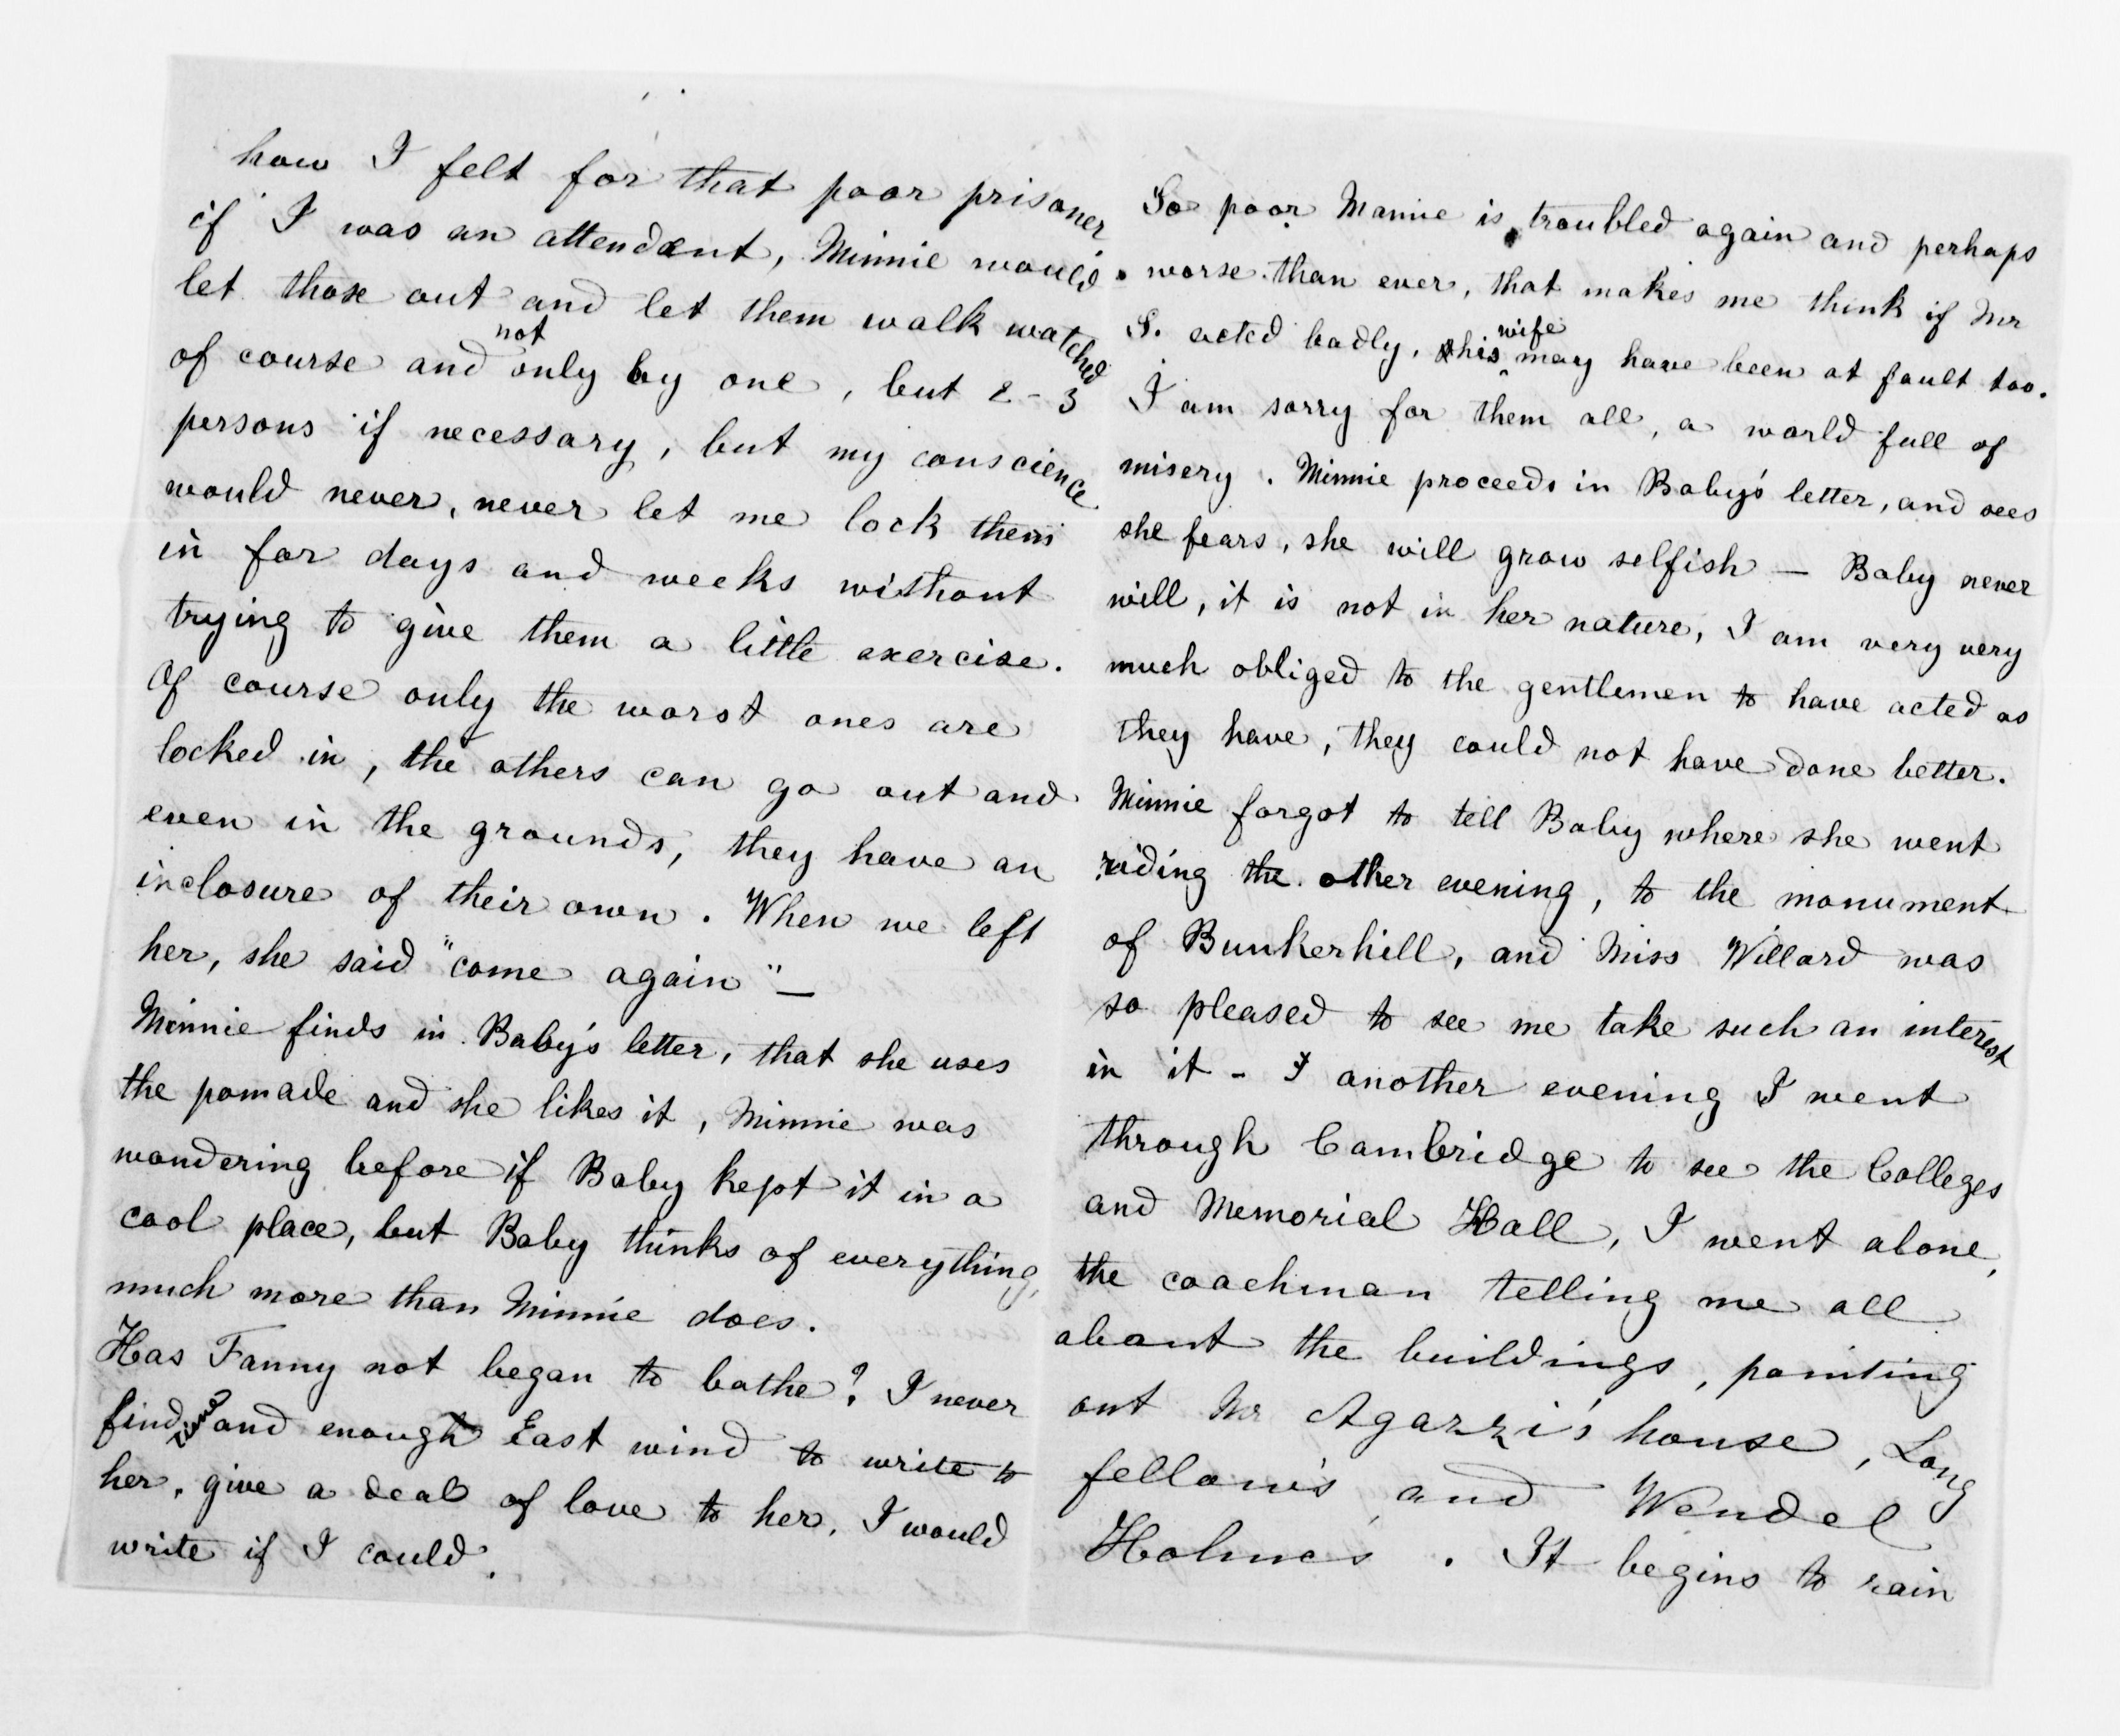 how I felt for that poor prisoner
if I was an attendant, Minnie would
let those out and let them walk watched
of course and not only by one, but 2-3
persons if necessary, but my conscience
would never, never let me lock them
in for days and weeks without
trying to give them a little exercise.
Of course only the worst ones are
locked in, the others can go out and
even in the grounds, they have an
inclosure of their own. When we left
her, she said "come again" —
Minnie finds in Baby's letter, that she uses
the pomade and she likes it, Minnie was
wondering before if Baby kept it in a
cool place, but Baby thinks of everything,
much more than Minnie does.
Has Fanny not began to bathe? I never
find time and enough East wind to write to
her, give a deal of love to her, I would
write if I could.
So poor Mamie is troubled again and perhaps
worse than ever, that makes me think if Mr
S. acted badly, his wife may have been at fault too.
I am sorry for them all, a world full of
misery. Minnie proceeds in Baby's letter, and sees
she fears, she will grow selfish — Baby never
will, it is not in her nature, I am very very
much obliged to the gentlemen to have acted as
they have, they could not have done better.
Minnie forgot to tell Baby where she went
riding the other evening, to the monument
of Bunkerhill, and Miss Willard was
so pleased to see me take such an interest
in it - I another evening I went
through Cambridge to see the Colleges
and Memorial Hall, I went alone,
the coachman telling me all
about the buildings, pointing
out Mr Agazzi's house, Long
fellow's and Wendel
Holmes'. It begins to rain